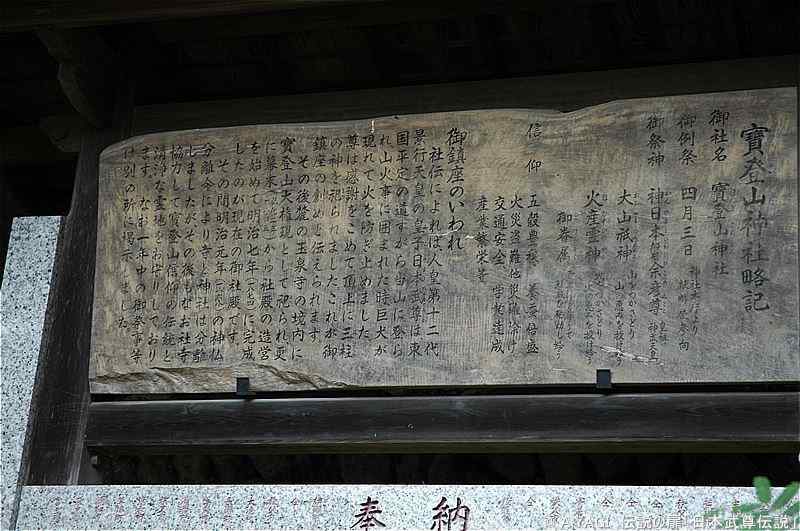 寶登山神社略記
御社名　寶登山神社
御例祭　四月三日
御祭神　神日本磐余彦尊　神武天皇
大山祇神
火産霊神
御眷属
信仰
五穀豊穣
火災盗難他災難除け
交通安全
産業繁栄等
御鎮座のいわれ
社伝によれば人皇第十二代
景行天皇の皇子日本武尊は東
国平定の道すがら当山に登ら
れ山火事に囲まれた時巨犬が
現れて火を防ぎ止めました
尊は感謝をこめて頂上に三柱
の神を祀られましたこれが御
鎮座の創めと伝えられます
その後麓の玉泉寺の境内に
寶登山大権現として祀られ更
に幕末から社殿の造営
を始めて明治七年に完成
したのが現在の御社殿です
その間明治元年の神仏
分離令により寺と神社は分離
しましたがその後もなお社寺
協力して寶登山信仰の伝統と
清浄な霊地をお守りしており
ます。なお一年中の御祭事等
は別の所に掲示しました
奉納
AYAGI 伝説の扉:日本武尊伝説